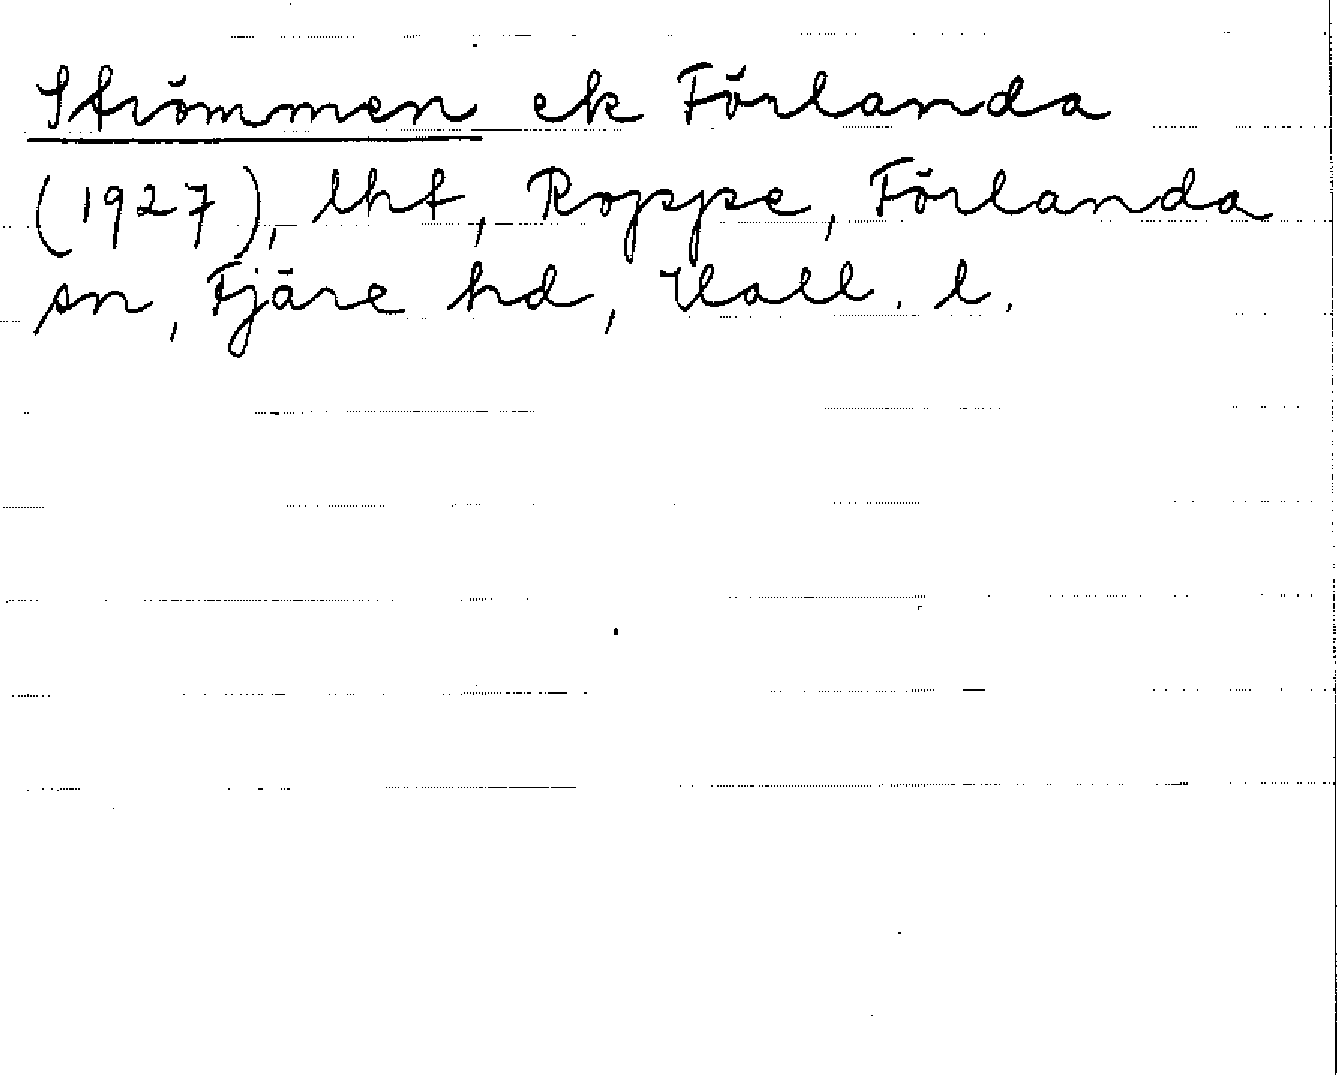 Strömmen ek Förlanda
(1927), lht, Roppe, Förlanda
sn, Fjäre hd, Hall. l.